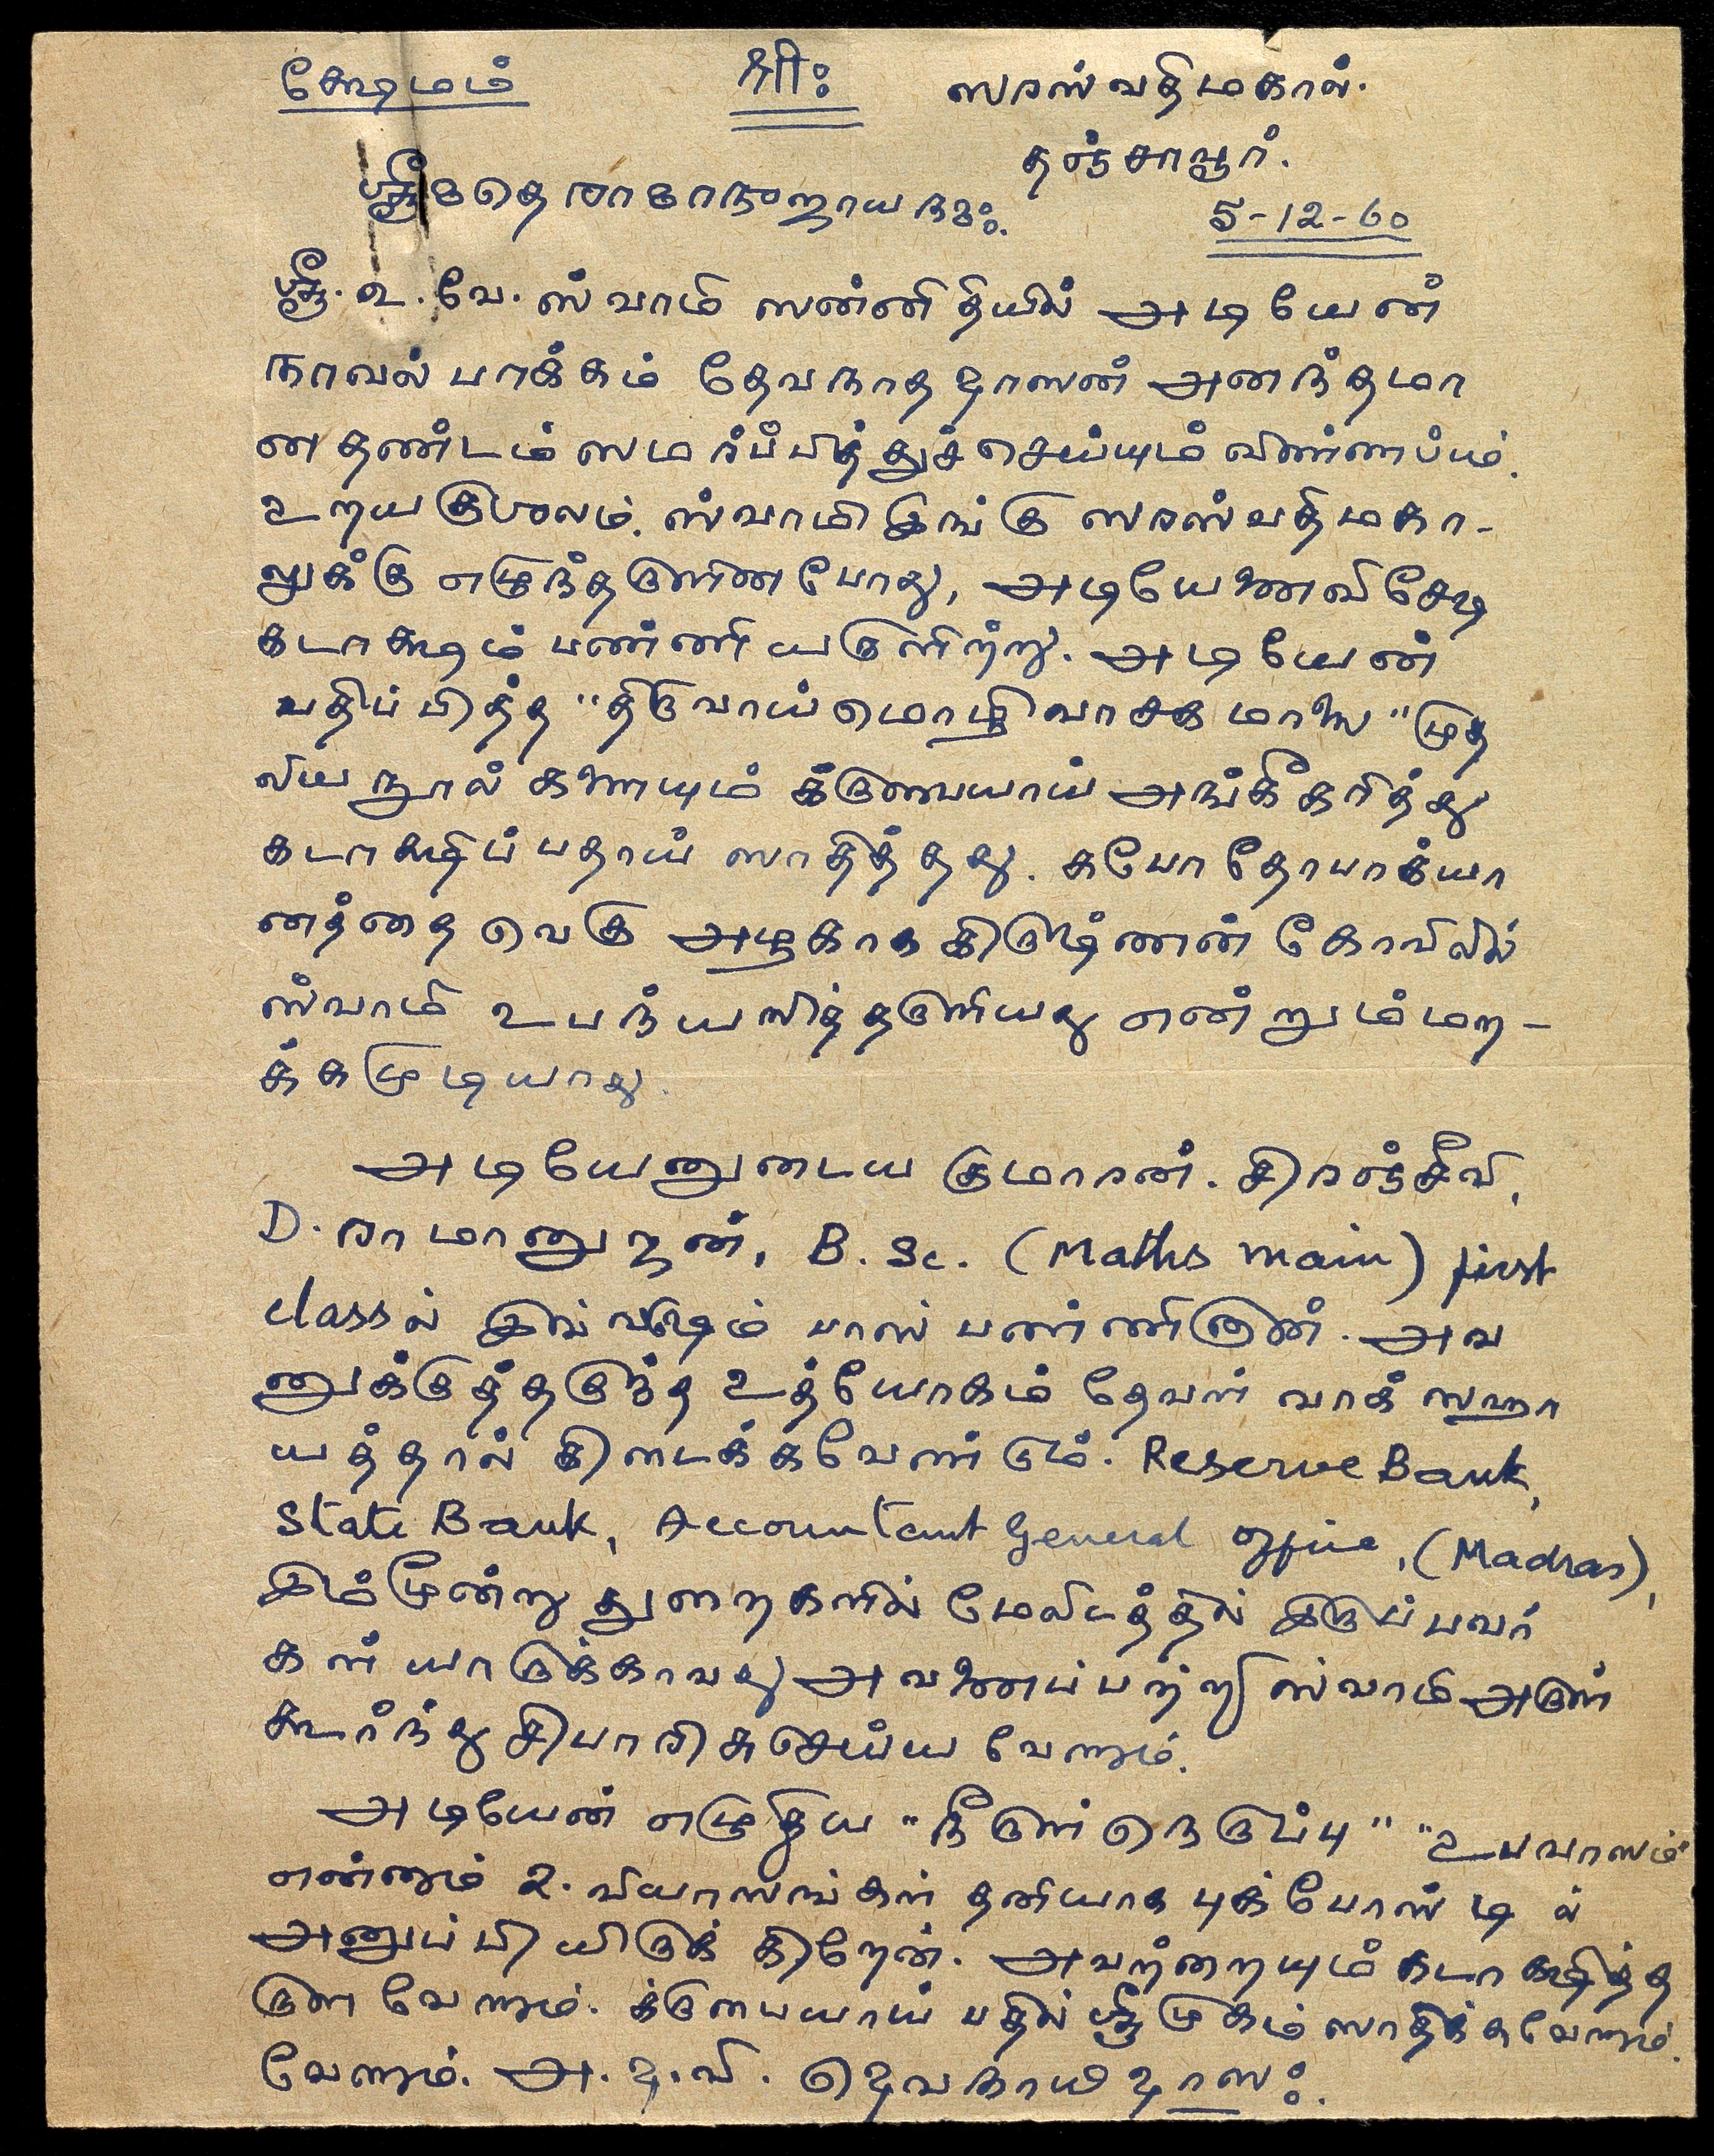 க்ஷேமம்
ஸ்ரீ:
ஸரஸ்வதிமகால்.
தஞ்சாவூர்.
ஸ்ரீமதே ராமாநுஜாய நம:.
5-12-60
ஸ்ரீ. உ. வே. ஸ்வாமி ஸன்னிதியில் அடியேன்
நாவல்பாக்கம் தேவநாததாஸன் அனந்தமா
ன தண்டம் ஸமர்ப்பித்துச்செய்யும் விண்ணப்பம்.
உறய குசலம். ஸ்வாமி இங்கு ஸரஸ்வதிமகா-
லுக்கு எழுந்தருளினபோது, அடியேனை விசேஷ
கடாக்ஷம் பண்ணியருளிற்று. அடியேன்
பதிப்பித்த "திருவாய்மொழிவாசகமாலை" முத
லிய நூல்களையும் க்ருபையாய் அங்கீகரித்து
கடாக்ஷிப்பதாய் ஸாதித்தது. கபோதோபாக்யா
னத்தை வெகு அழகாக கிருஷ்ணன் கோவிலில்
ஸ்வாமி உபந்யஸித்தருளியது என்றும் மற-
க்கமுடியாது.
அடியேனுடைய குமாரன். சிரஞ்சீவி,
D. ராமானுஜன், B.Sc. (Maths main) first
classல் இவ்வருஷம் பாஸ் பண்ணினான். அவ
னுக்குத்தகுந்த உத்யோகம் தேவரீர் வாக் ஸஹா
யத்தால் கிடைக்கவேண்டும். Reserve Bank,
State Bank, Accountant General Office, (Madras),
இம்மூன்று துறைகளில் மேலிடத்தில் இருப்பவர்
கள் யாருக்காவது அவனைப்பற்றி ஸ்வாமி அருள்
கூர்ந்து சிபாரிசு செய்ய வேணும்.
அடியேன் எழுதிய "நீருள் நெருப்பு" "உபவாஸம்"
என்னும் 2. வியாஸங்கள் தனியாக புக்போஸ்டில்
அனுப்பியிருக்கிறேன். அவற்றையும் கடாக்ஷித்த
ருள வேணும். க்ருபையாய் பதில் ஸ்ரீமுகம் ஸாதிக்கவேணும்.
வேணும். அ. தா. வி. தெவநாயிதாஸ:.